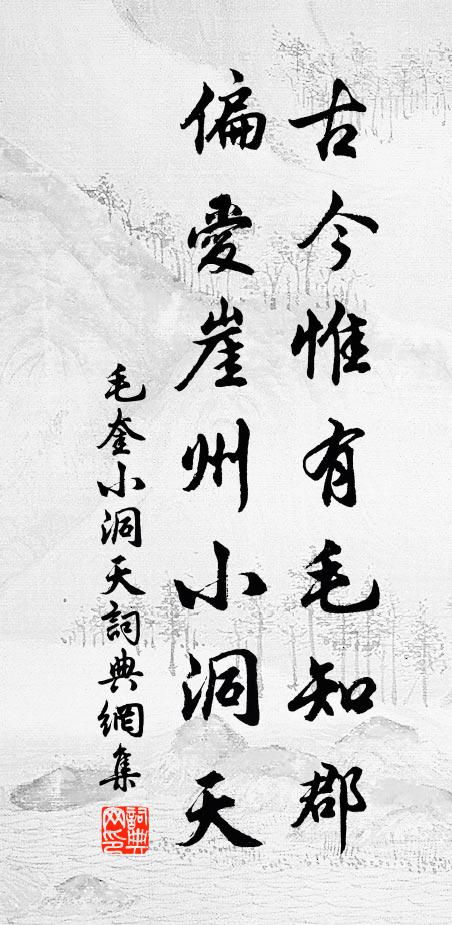 古今惟有毛知郡
偏愛崖州小洞天
毛奎小洞天詞典網集
詞典网印